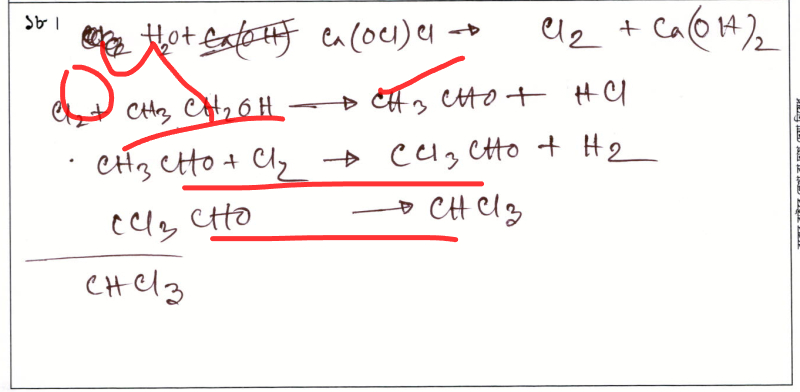 H2O + Ca(OCl)Cl → Cl2 + Ca(OH)2
Cl2 + CH3 CH2OH → CH3 CHO + HCl
· CH3 CHO + Cl2 → CCl3 CHO + H2
CCl3 CHO → CHCl3
CHCl3